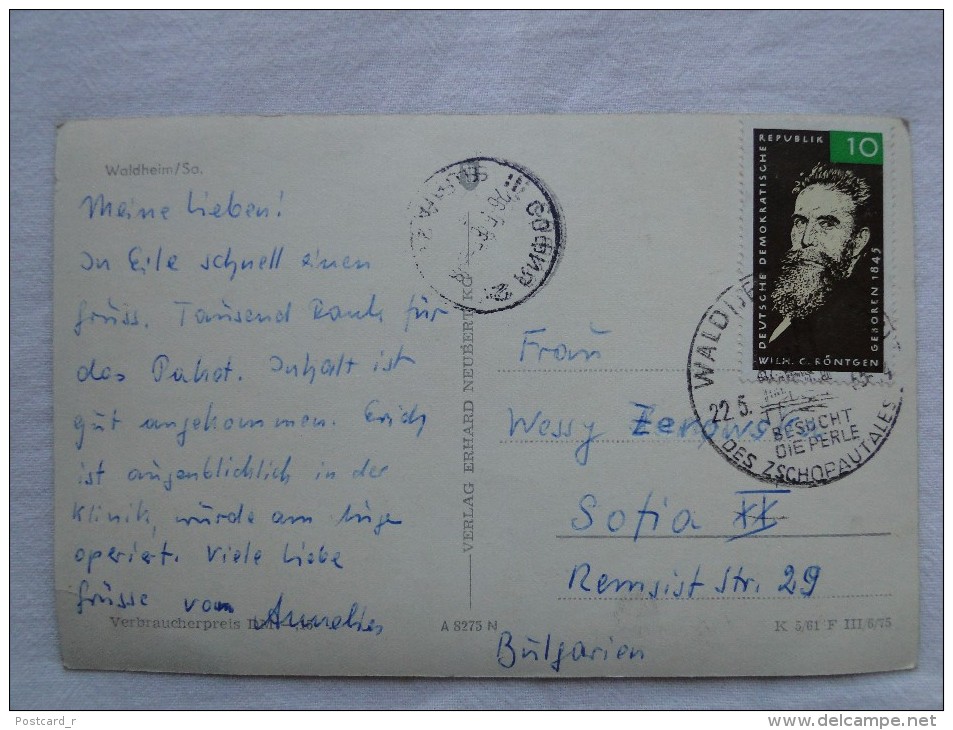 Waldheim/Sa.
Meine Lieben!
In Eile schnell einen
Grüss. Tausend Dank für
das Paket. Inhalt ist
gut angekommen. Erich
ist augenblicklich in der
Klinik, würde am Auge
operiert. Viele Liebe
Grüsse von Annelies
Verbraucherpreis
VERLAG ERHARD NEUBERT KG
A 8275 N
СОФИЯ
DEUTSCHE DEMOKRATISCHE
REPUBLIK
10
GEBOREN 1845
WILH. C. RÖNTGEN
22.5.
BESUCHT
DIE PERLE
DES ZSCHOPAUTALES
Frau
Wessy
Sofia XX
Remsist Str. 29
Bulgarien
K 5/61 F III/6/75
Postcard_r
www.delcampe.net